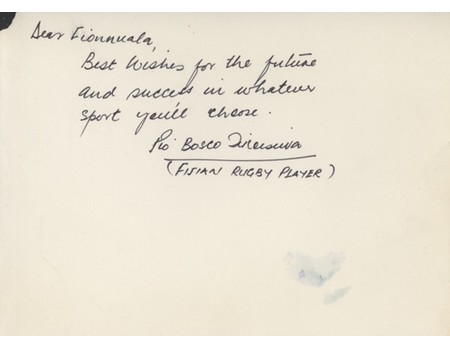 Dear Fionnuala,
Best Wishes for the future
and success in whatever
sport you'll choose.
Pio Bosco Tikoisuva
(FIJIAN RUGBY PLAYER)